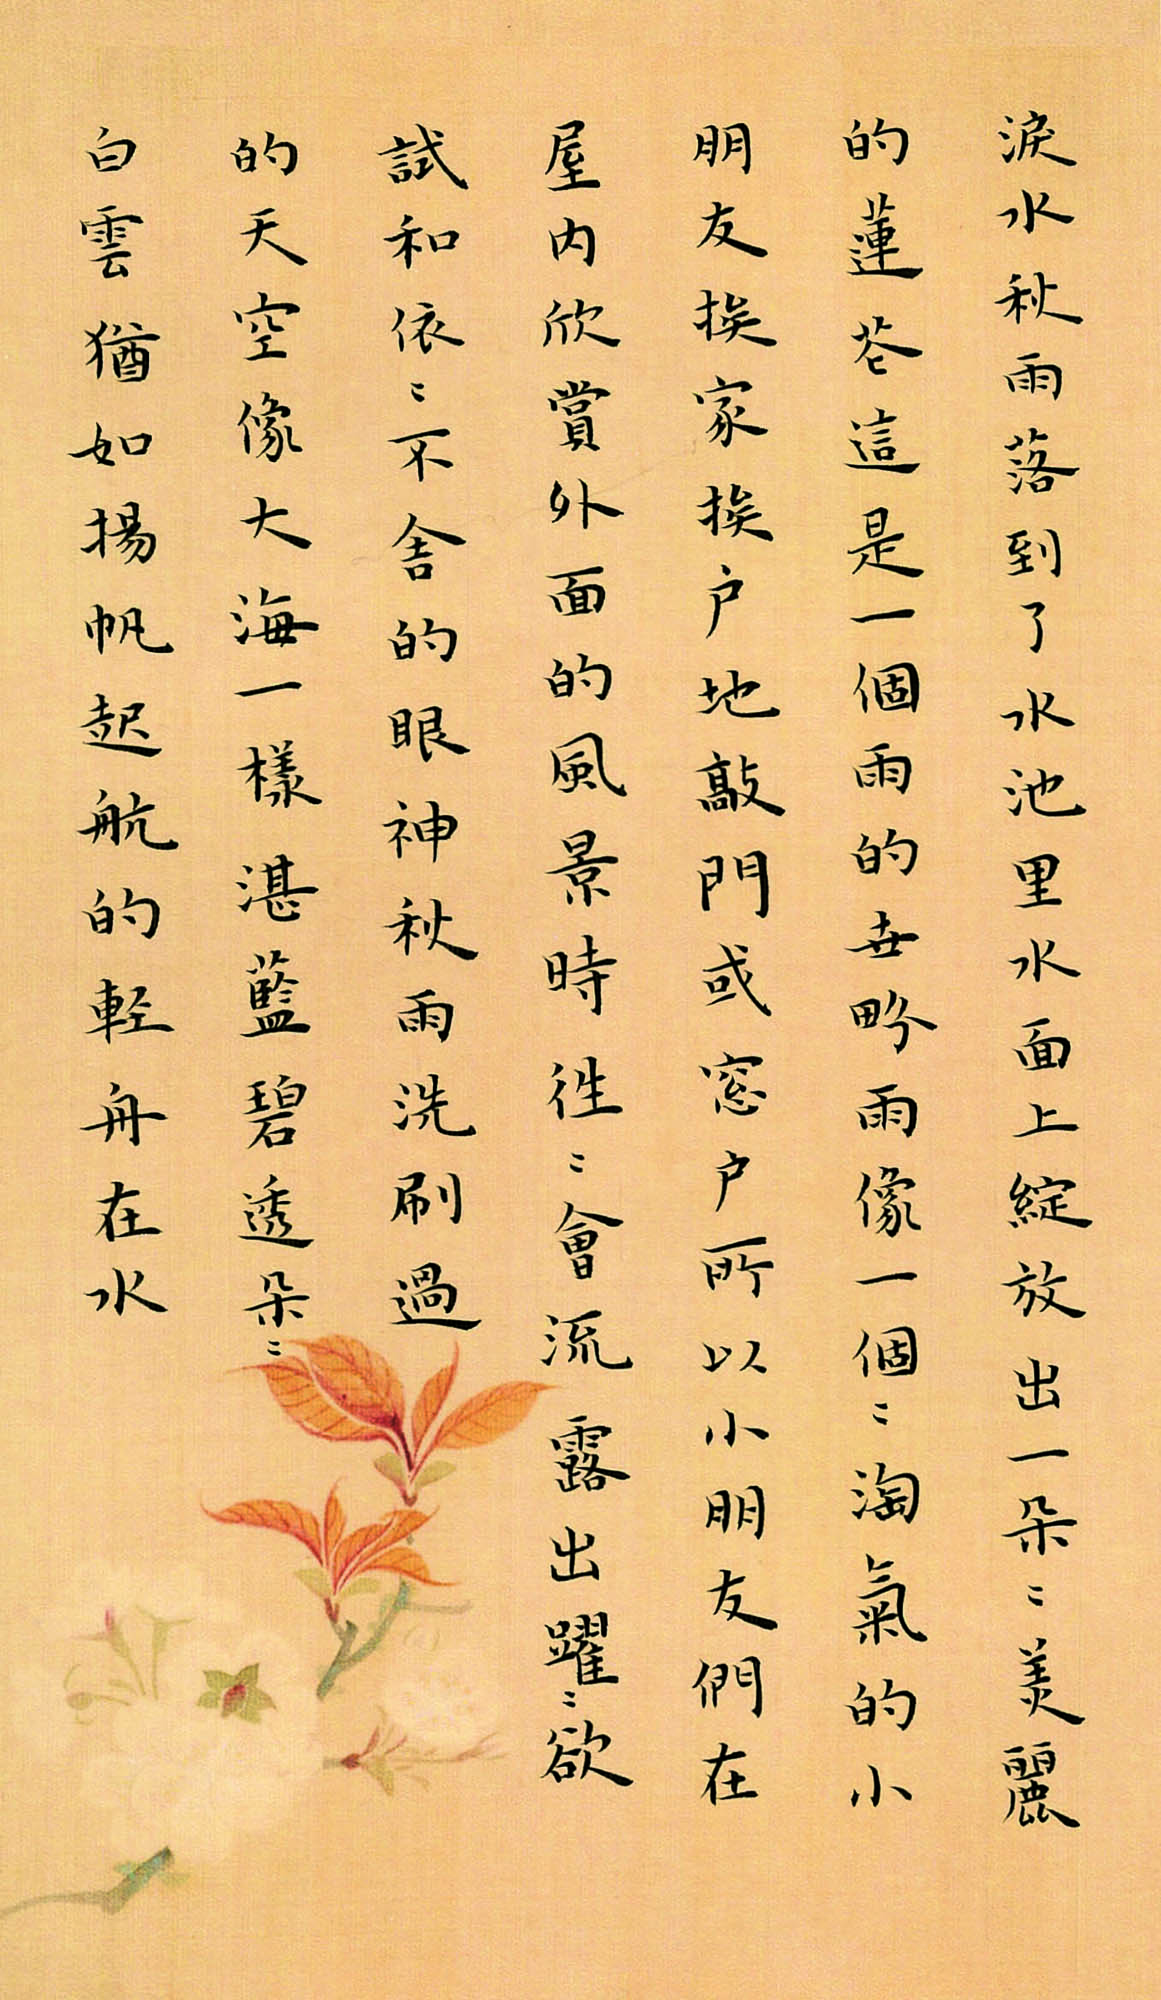 淚水秋雨落到了水池里水面上綻放出一朵〻美麗
的蓮苍這是一個雨的世畍雨像一個〻淘氣的小
朋友挨家挨户地敲門或窓户所以小朋友們在
屋内欣賞外面的風景時徃〻會流露出躍〻欲
試和依〻不舍的眼神秋雨洗刷過
的天空像大海一樣湛藍碧透朵〻
白雲猶如揚帆起航的輕舟在水